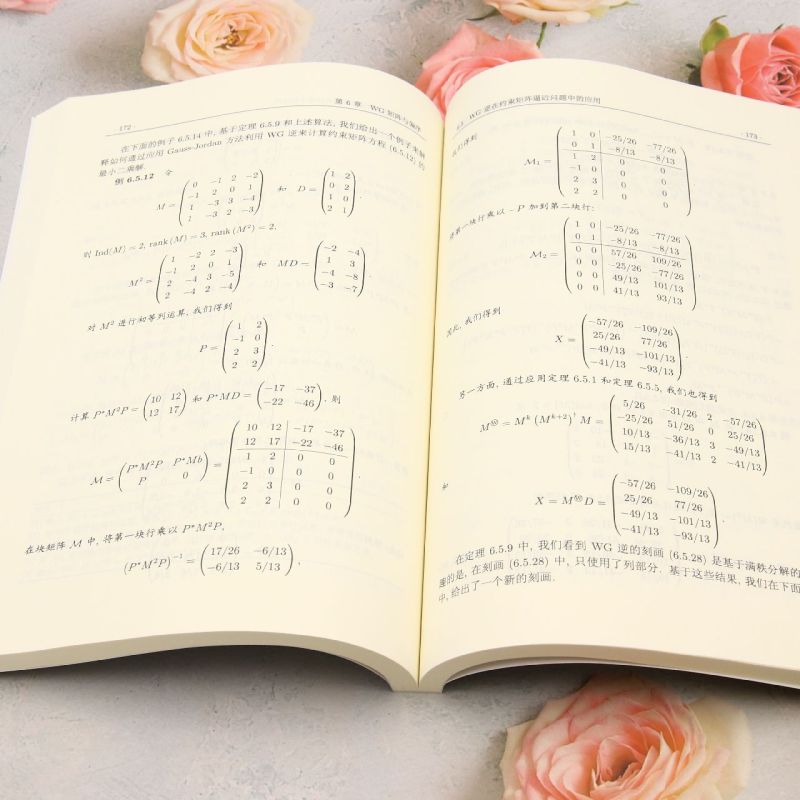 ·172· 第 6 章 WG 矩阵与偏序
在下面的例子 6.5.14 中, 基于定理 6.5.9 和上述算法, 我们给出一个例子来解
释如何通过应用 Gauss-Jordan 方法利用 WG 逆来计算约束矩阵方程 (6.5.12) 的
最小二乘解.
例 6.5.12 令
M = ( 0 -1 2 -2 ; -1 2 0 1 ; 1 -3 3 -4 ; 1 -3 2 -3 ) 和 D = ( 1 2 ; 0 2 ; 1 0 ; 2 1 ) .
则 Ind(M) = 2, rank (M) = 3, rank (M²) = 2,
M² = ( 1 -2 2 -3 ; -1 2 0 1 ; 2 -4 3 -5 ; 2 -4 2 -4 ) 和 MD = ( -2 -4 ; 1 3 ; -4 -8 ; -3 -7 ) .
对 M² 进行初等列运算, 我们得到
P = ( 1 2 ; -1 0 ; 2 3 ; 2 2 ) .
计算 P*M²P = ( 10 12 ; 12 17 ) 和 P*MD = ( -17 -37 ; -22 -46 ) , 则
M = ( P*M²P P*Mb ; P 0 ) = ( 10 12 -17 -37 ; 12 17 -22 -46 ; 1 2 0 0 ; -1 0 0 0 ; 2 3 0 0 ; 2 2 0 0 ) .
在块矩阵 M 中, 将第一块行乘以 P*M²P,
(P*M²P)⁻¹ = ( 17/26 -6/13 ; -6/13 5/13 ) ,
6.5 WG 逆在约束矩阵逼近问题中的应用 ·173·
我们得到
M₁ = ( 1 0 -25/26 -77/26 ; 0 1 -8/13 -8/13 ; 1 2 0 0 ; -1 0 0 0 ; 2 3 0 0 ; 2 2 0 0 )
将第一块行乘以 -P 加到第二块行:
M₂ = ( 1 0 -25/26 -77/26 ; 0 1 -8/13 -8/13 ; 0 0 57/26 109/26 ; 0 0 -25/26 -77/26 ; 0 0 49/13 101/13 ; 0 0 41/13 93/13 ) ,
因此, 我们得到
X = ( -57/26 -109/26 ; 25/26 77/26 ; -49/13 -101/13 ; -41/13 -93/13 ) .
另一方面, 通过应用定理 6.5.1 和定理 6.5.5, 我们也得到
Mⓦ = Mᵏ (Mᵏ⁺²)† M = ( 5/26 -31/26 2 -57/26 ; -25/26 51/26 0 25/26 ; 10/13 -36/13 3 -49/13 ; 15/13 -41/13 2 -41/13 )
和
X = MⓦD = ( -57/26 -109/26 ; 25/26 77/26 ; -49/13 -101/13 ; -41/13 -93/13 ) .
在定理 6.5.9 中, 我们看到 WG 逆的刻画 (6.5.28) 是基于满秩分解的
的是, 在刻画 (6.5.28) 中, 只使用了列部分. 基于这些结果, 我们在下面
中, 给出了一个新的刻画.